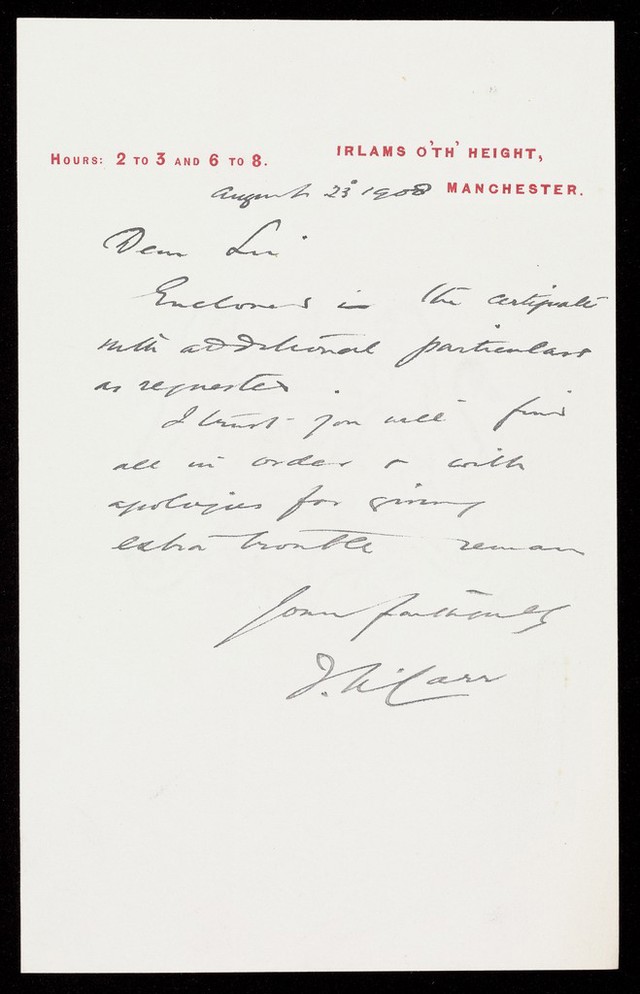 HOURS: 2 TO 3 AND 6 TO 8.
IRLAMS O'TH' HEIGHT,
MANCHESTER.
August 23 1908
Dear Sir
Enclosed is the certificate
with additional particulars
as requested.
I trust you will find
all in order & with
apologies for giving
extra trouble remain
Yours faithfully
Carr